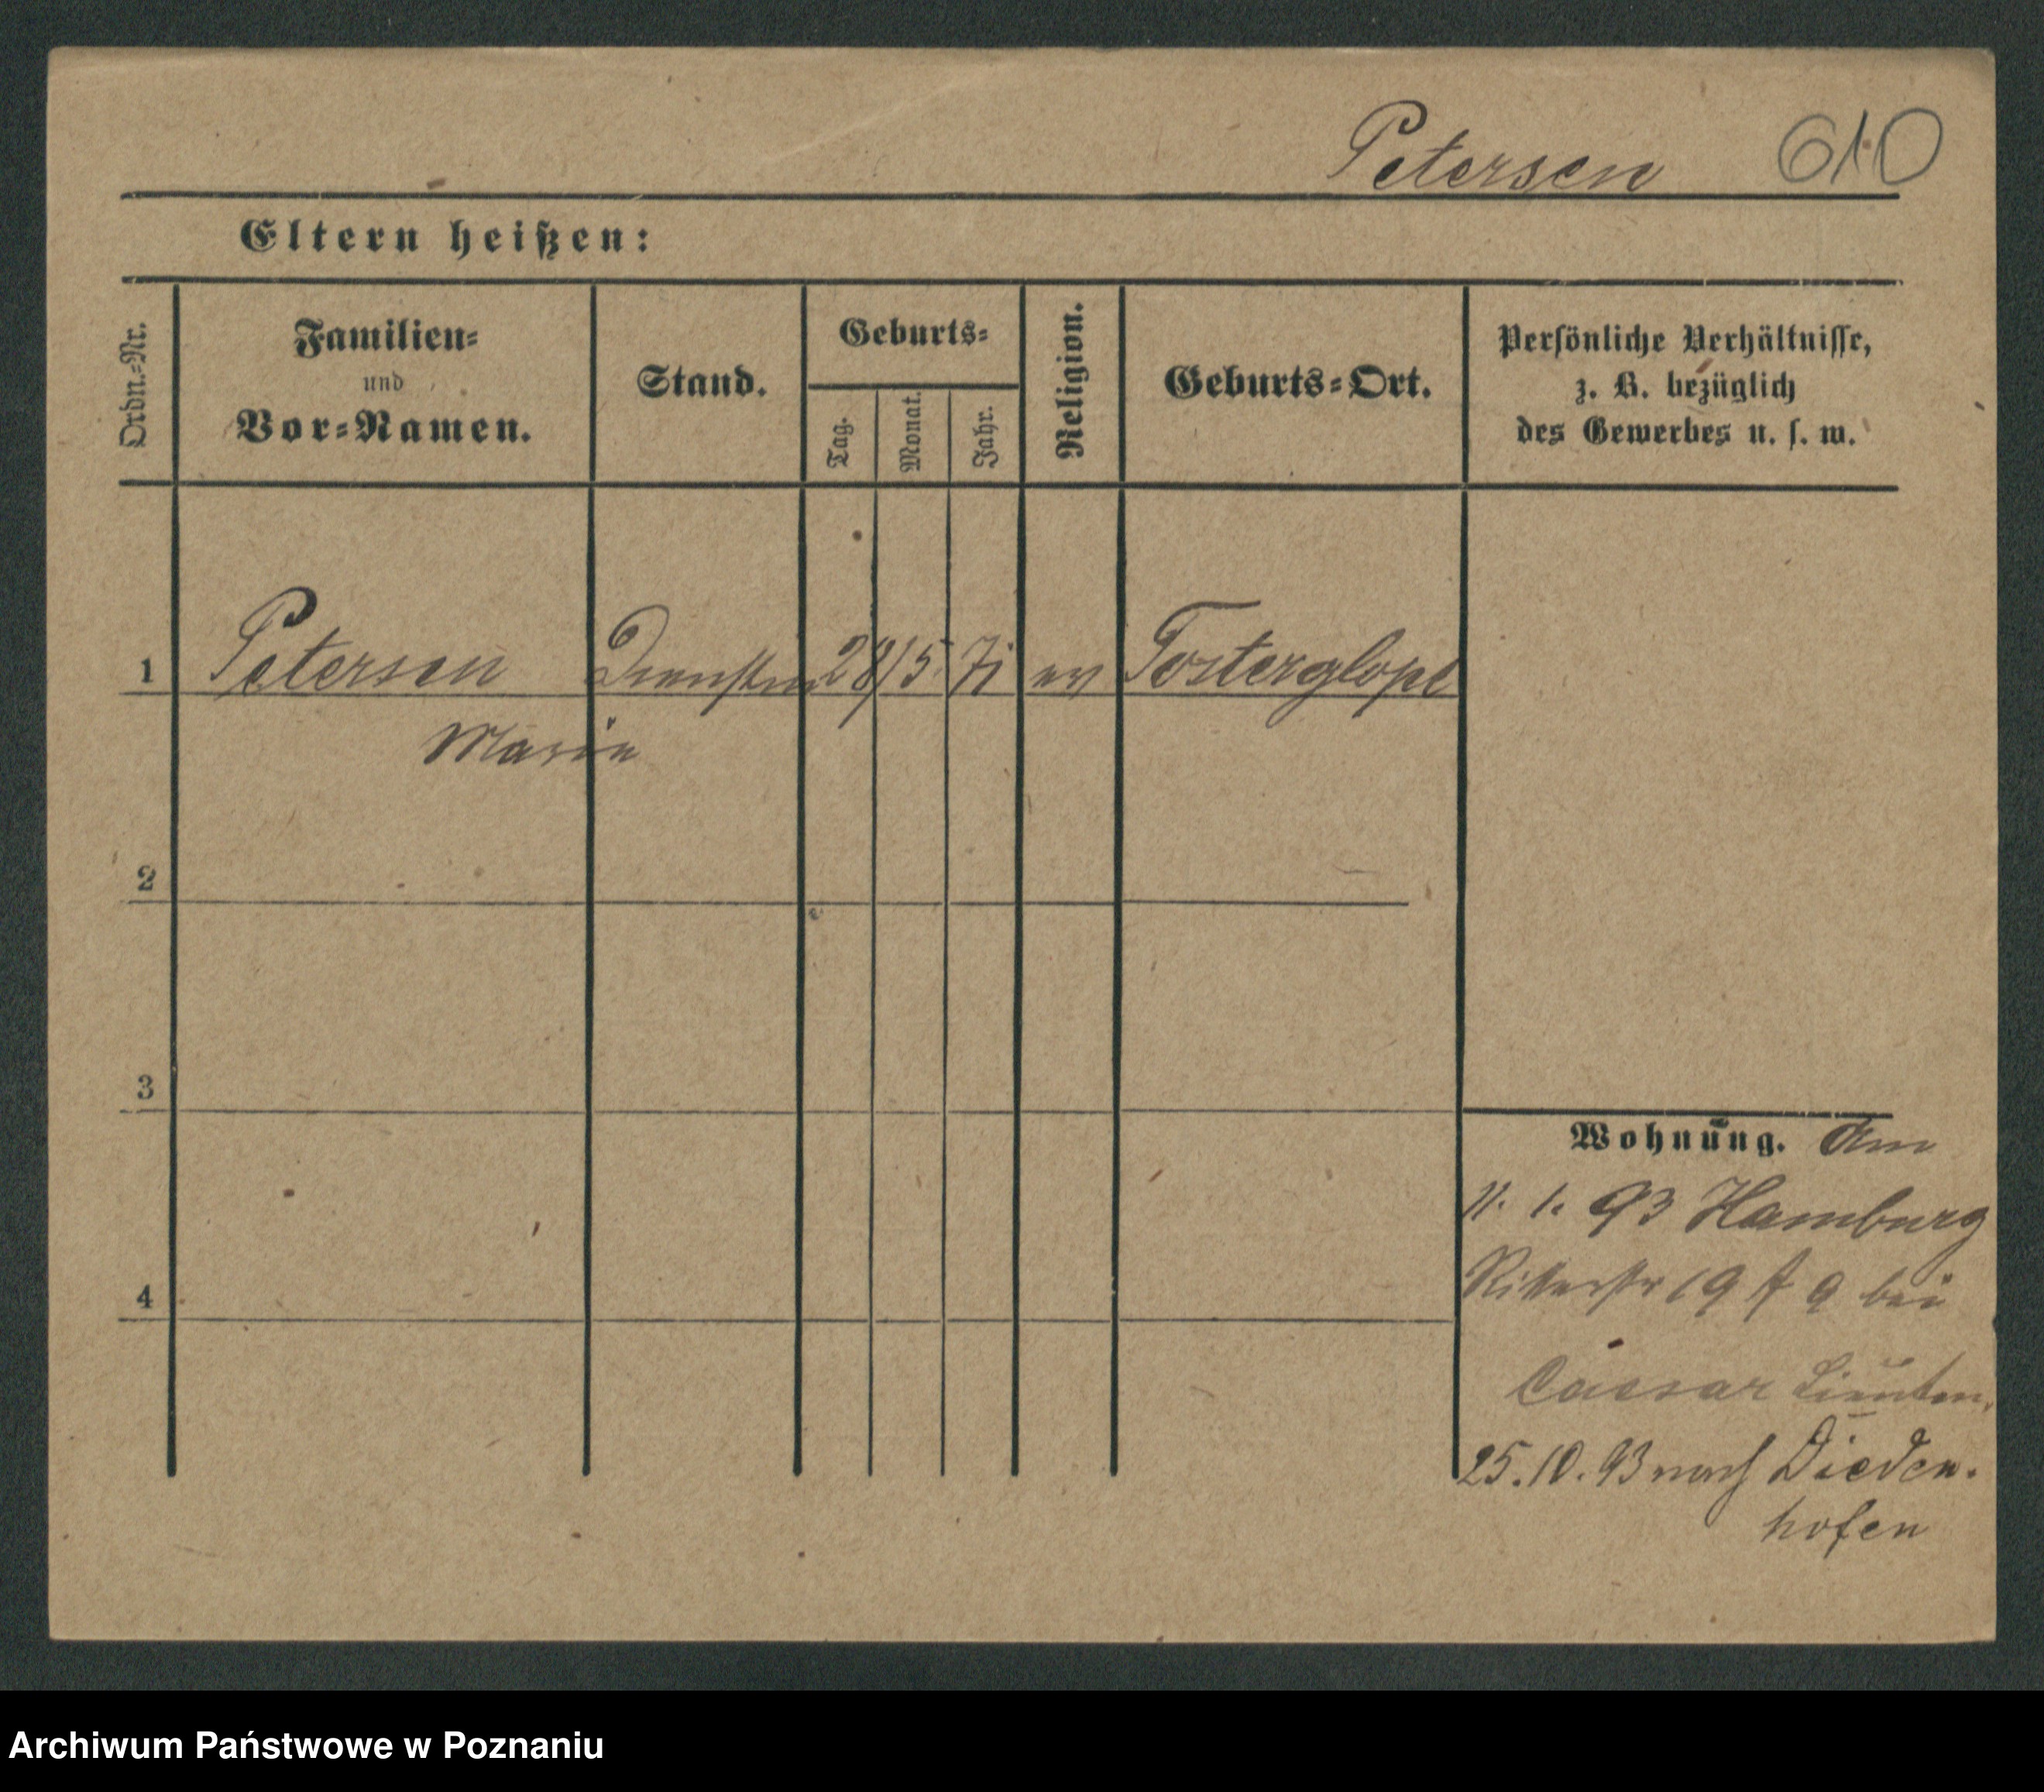 Petersen 610
Eltern heißen:
Ordn.-Nr.
Familien-
und
Vor-Namen.
Stand.
Geburts-
Tag.
Monat.
Jahr.
Religion.
Geburts-Ort.
Persönliche Verhältnisse,
z. B. bezüglich
des Gewerbes u. s. w.
1 Petersen 28/5 71 ev Tosterglope
Marie
2
3
4
Wohnung. Am
11. 1. 93 Hamburg
Ritterstr 19 9 bei
Caesar Lieuten.
25.10.93 nach Dieden-
hofen
Archiwum Państwowe w Poznaniu